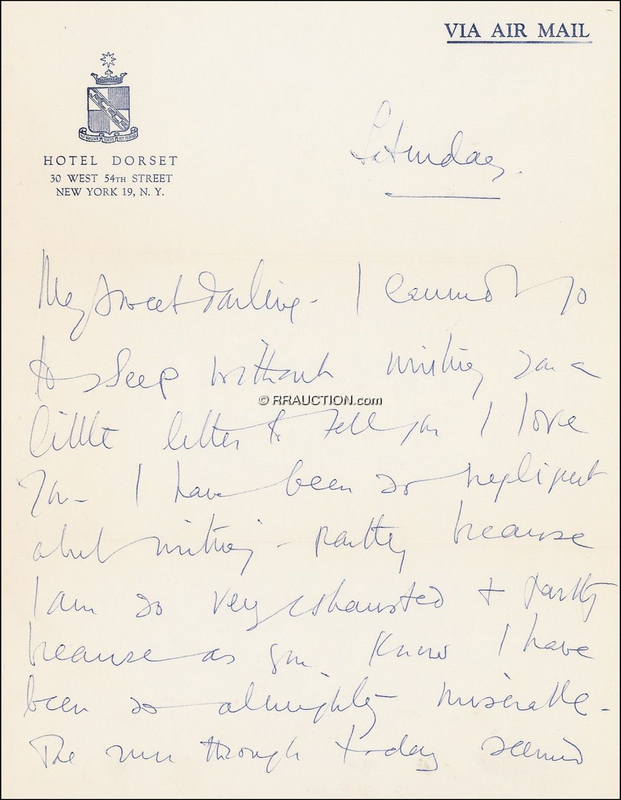 VIA AIR MAIL
HOTEL DORSET
30 WEST 54TH STREET
NEW YORK 19, N. Y.
Saturday.
My sweet darling - I cannot go
to sleep without writing you a
© RRAUCTION.com
little letter to tell you I love
you - I have been so negligent
about writing - partly because
I am so very exhausted + partly
because as you know I have
been so almighty miserable -
The run through today seemed